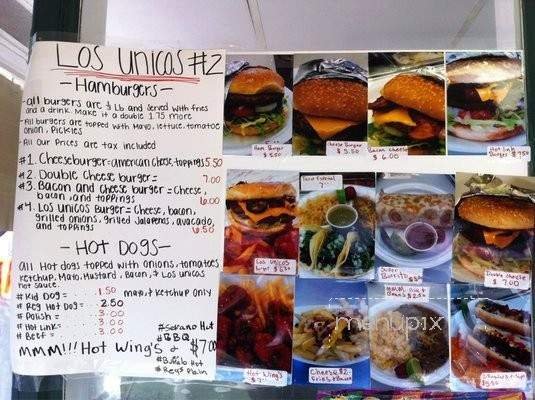 Los Unicos #2
- Hamburgers -
- all burgers are ½ Lb and served with fries
and a drink. Make it a double 1.75 more
- All burgers are topped with Mayo, lettuce, tomatoe
onion, Pickles
- All Our Prices are tax included
#1. Cheeseburger = american cheese, toppings 5.50
#2. Double Cheese burger = 7.00
#3. Bacon and Cheese burger = Cheese,
bacon, and toppings 6.00
#4. Los Unicos Burger = Cheese, bacon,
grilled onions, grilled Jalapenos, avocado,
and toppings 6.50
- Hot Dogs -
all Hot dogs topped with onions, tomatoes
ketchup, Mayo, Mustard, Bacon, & Los Unicos
hot sauce.
# Kid Dog = 1.50 mayo, & ketchup only
# Reg Hot Dog = 2.50
# Polish = 3.00
# Hot Link = 3.00
# Beef = 3.00
MMM!!! Hot Wing's $7.00
# Serano Hot
# BBQ
# Bufalo Hot
# Reg's Plain
Ham Burger
$5.50
Cheese Burger
$5.50
Bacon Cheese
$6.00
Hot Link
Burger $7.50
Los Unicos
Taco Especial
Super
Burrito
Double Cheese
$7.00
Hot Wing's
Cheese
Fries & Bacon
menupix